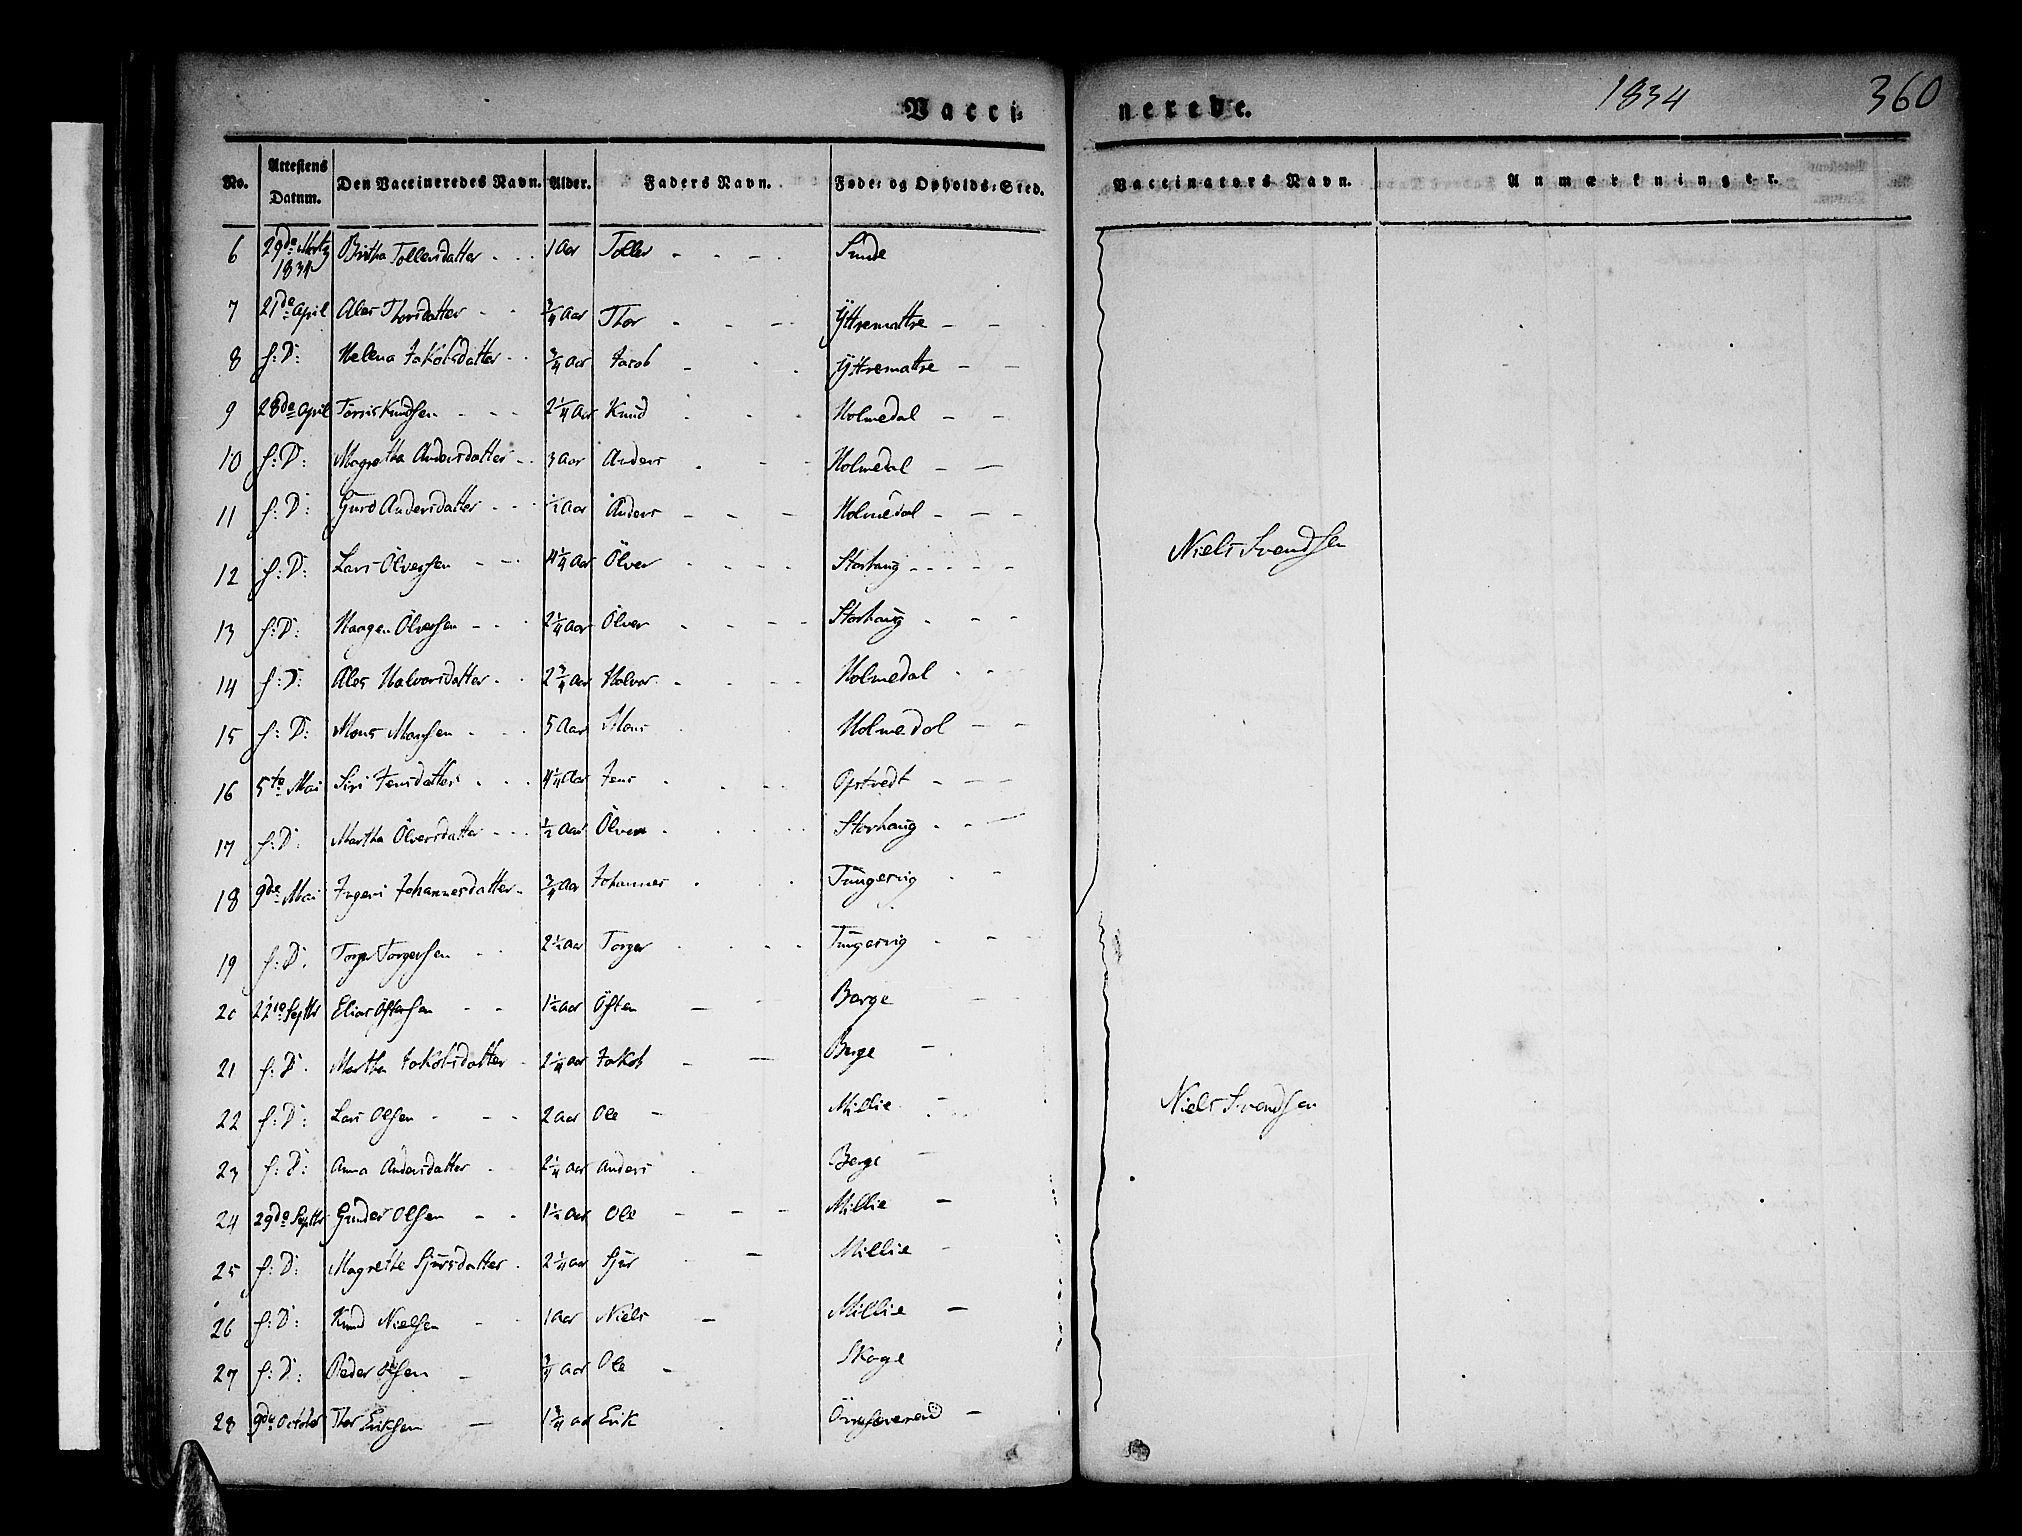 Vacci-
nerede.
1834
360
No. Attestens Datum. Den Vaccineredes Navn. Alder. Faders Navn. Føde- og Opholds-Sted. Vaccinators Navn. Anmærkninger.
6 29de Martz 1834 Britha Tollersdatter 1 Aar Toller Sunde
7 21de April Ales Thorsdatter 3/4 Aar Thor Yttremattre
8 f: D: Helena Jakobsdatter 3/4 Aar Jacob Yttremattre
9 28de April Torris Knudsen 2 1/4 Aar Knud Holmedal
10 f: D: Magretha Andersdatter 3 Aar Anders Holmedal
11 f: D: Gurd Andersdatter 1/2 Aar Anders Holmedal
Niels Svendsen
12 f: D: Lars Ölversen 4 1/4 Aar Ölver Storhaug
13 f: D: Haagen Ölversen 2 1/4 Aar Ölver Storhaug
14 f: D: Ales Halvorsdatter 2 3/4 Aar Halvor Holmedal
15 f: D: Mons Monsen 5 Aar Mons Holmedal
16 5te Mai Siri Jensdatter 4 1/4 Aar Jens Opstvedt
17 f: D: Martha Ölversdatter 1/2 Aar Ölver Storhaug
18 9de Mai Ingeri Johannesdatter 3/4 Aar Johannes Tungervig
19 f: D. Torger Torgersen 2 1/2 Aar Torger Tungervig
20 22de Septbr Elias Östensen 1 1/2 Aar Östen Berge
21 f: D. Martha Jakobsdatter 2 1/4 Aar Jakob Berge
22 f: D: Lars Olsen 2 Aar Ole Millie
Niels Svendsen
23 f: D: Anna Andersdatter 2 1/4 Aar Anders Berge
24 29de Septbr Gunder Olsen 1 1/2 Aar Ole Millie
25 f: D: Magrethe Sjursdatter 2 1/4 Aar Sjur Millie
26 f: D: Knud Nielsen 1 Aar Niels Millie
27 f: D: Peder Olsen 3/4 Aar Ole Skoge
28 9de October Thor Eriksen 1 3/4 Aar Erik